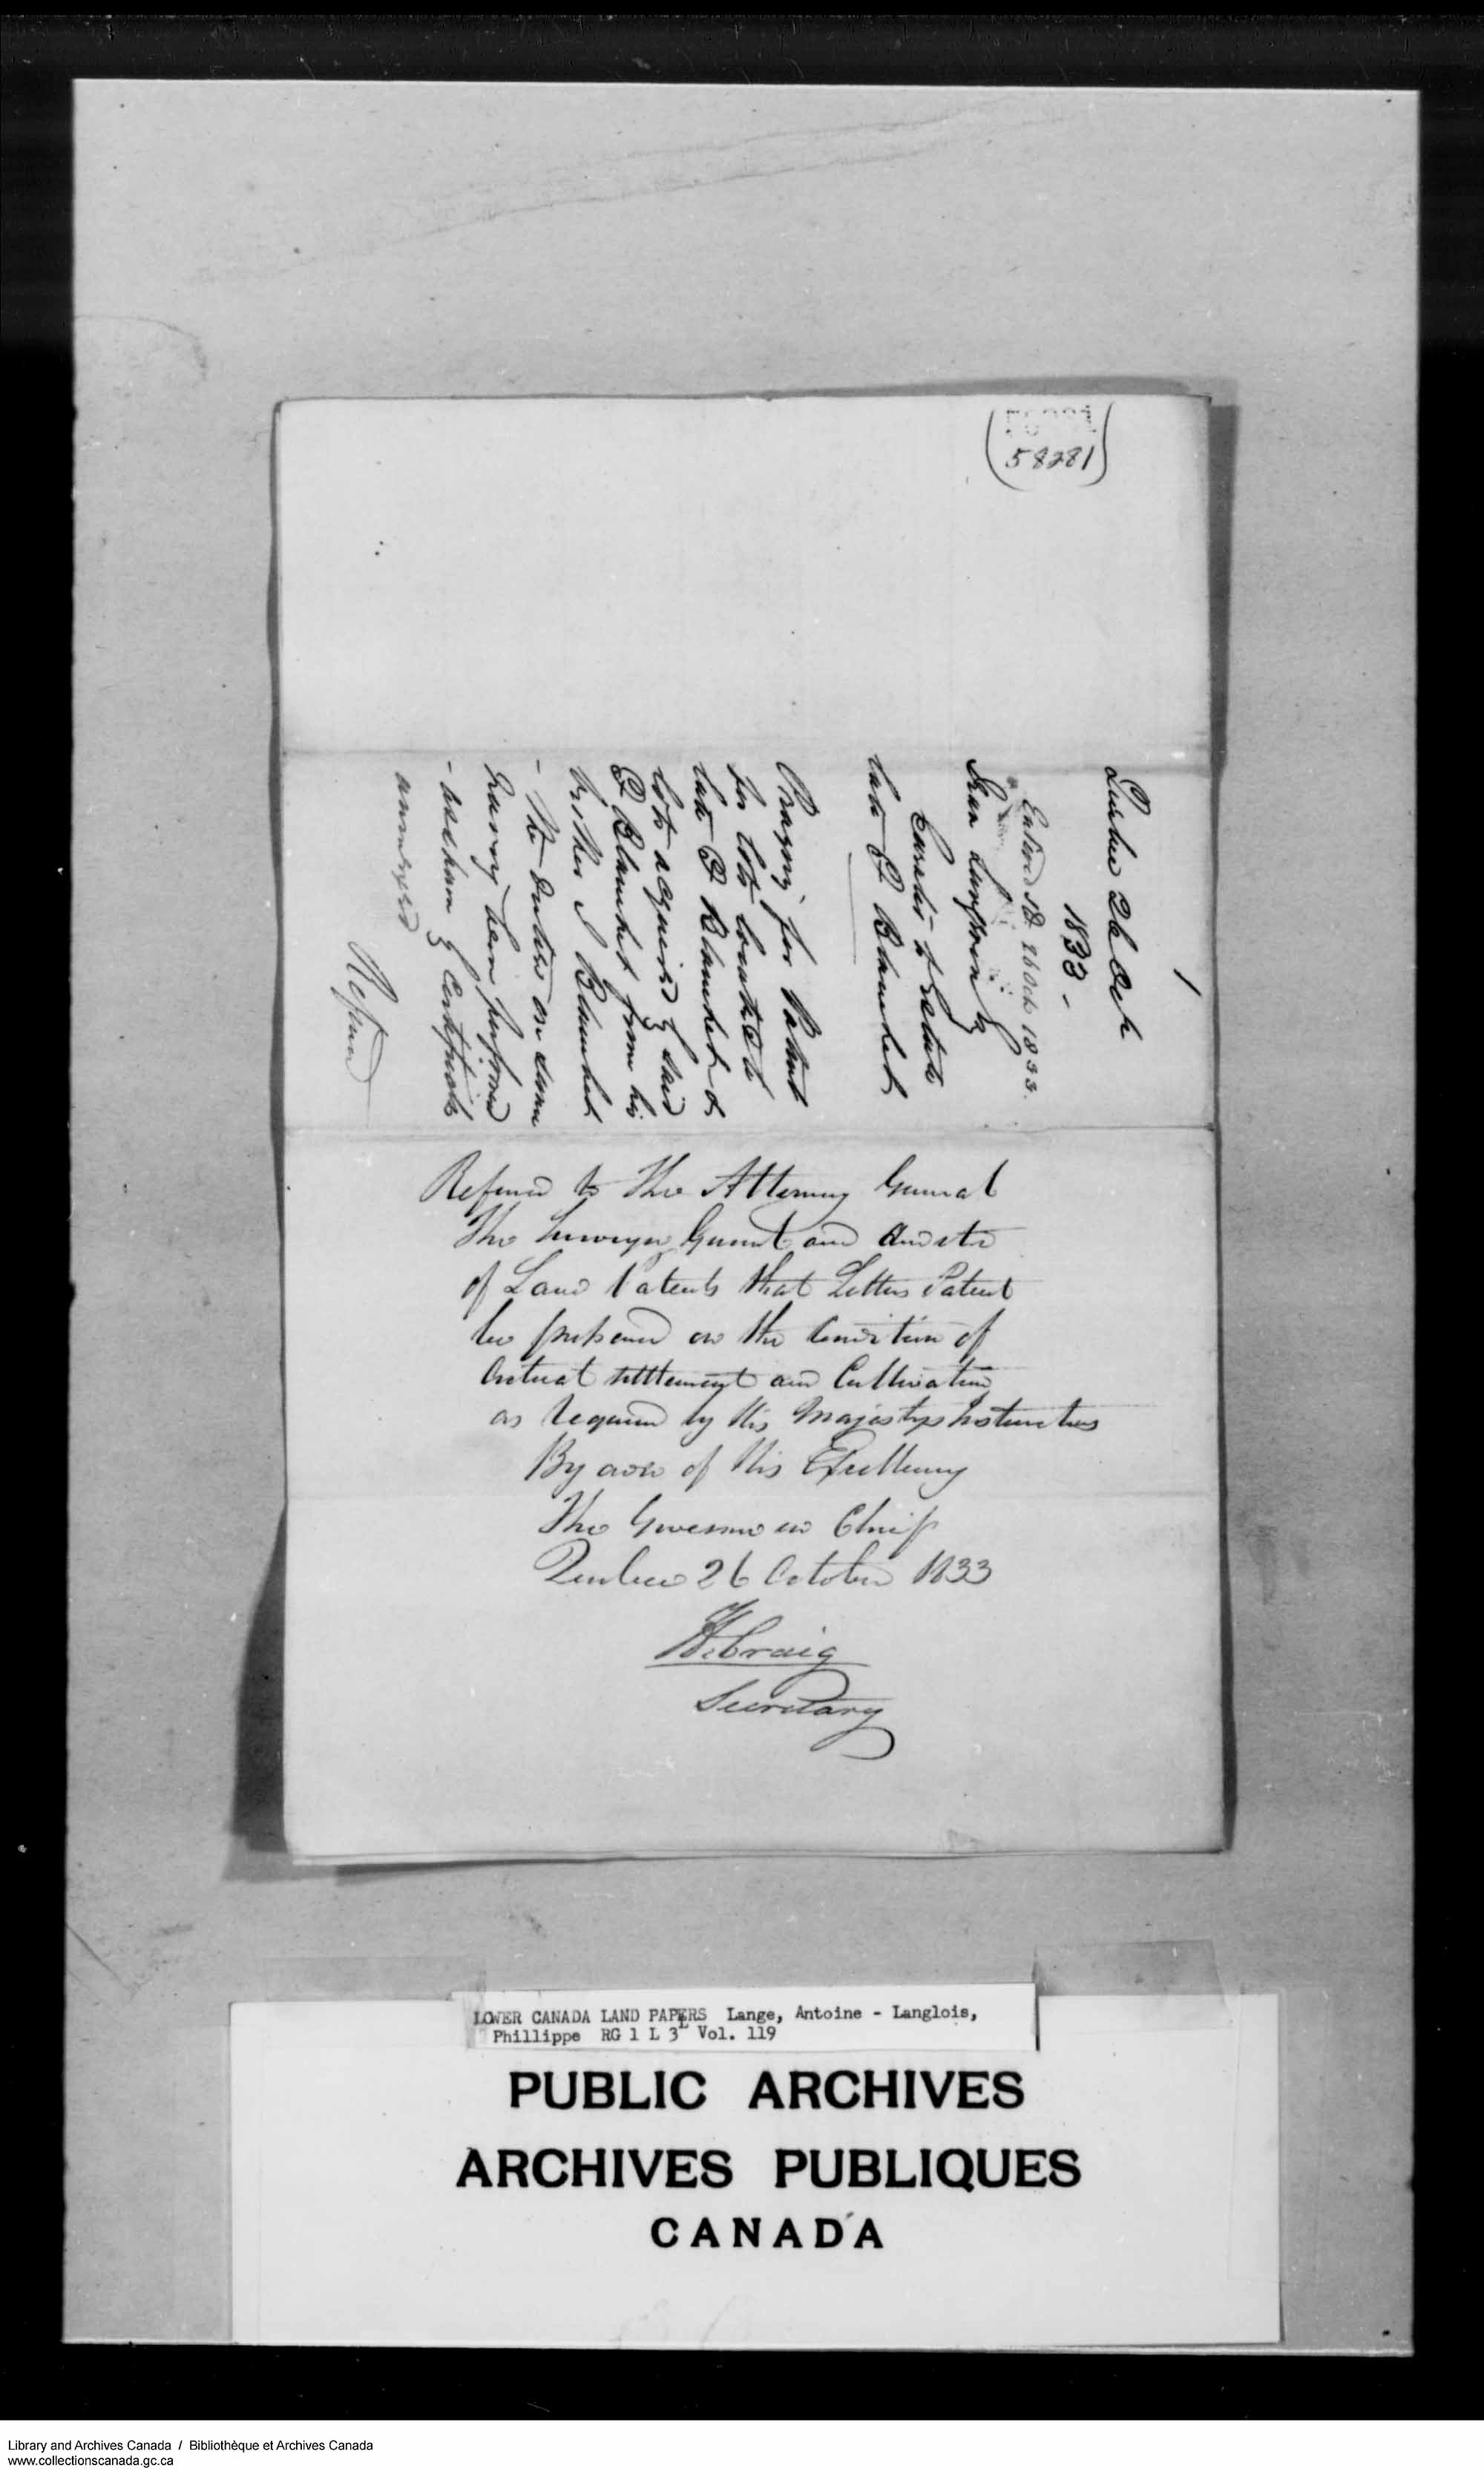 58281
1
Quebec 26 Oct
1833 -
Entered 26 Oct 1833.
Jean Langevin
Curator to Estate
late F Blanchet
Praying for Patent
for lots located to
late F Blanchet &
lots acquired by said
F Blanchet from his
brother J Blanchet
- the duties on same
having been performed
- as cham of Certificate
annexed
Referred
Referred to The Attorney General
The Surveyor General and Auditor
of Land Patents that Letters Patent
be prepared on the Condition of
Actual settlement and Cultivation
as required by His Majestys Instructions
By order of His Excellency
The Governor in Chief
Quebec 26 October 1833
H. Craig
Secretary
LOWER CANADA LAND PAPERS Lange, Antoine - Langlois,
Phillippe RG 1 L 3L Vol. 119
PUBLIC ARCHIVES
ARCHIVES PUBLIQUES
CANADA
Library and Archives Canada / Bibliothèque et Archives Canada
www.collectionscanada.gc.ca